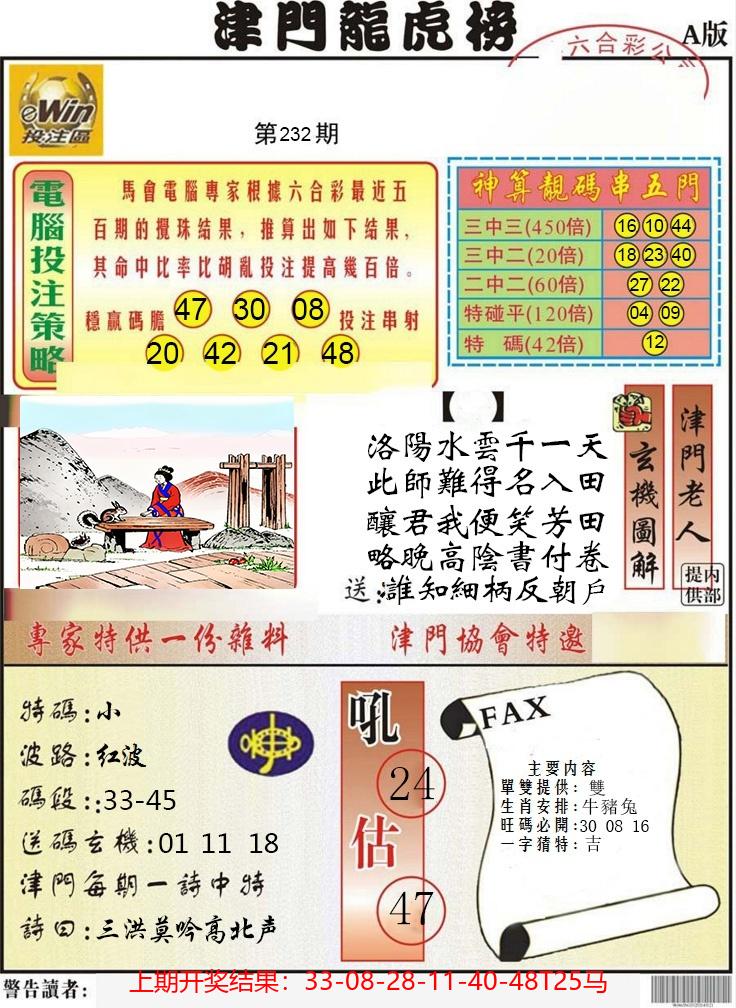 津門龍虎榜
A版
六合彩公
eWin
投注區
第232期
電腦投注策略
馬會電腦專家根據六合彩最近五
百期的攪珠結果，推算出如下結果，
其命中比率比胡亂投注提高幾百倍。
穩贏碼膽 47 30 08 投注串射
20 42 21 48
神算靚碼串五門
三中三(450倍) 16 10 44
三中二(20倍) 18 23 40
二中二(60倍) 27 22
特碰平(120倍) 04 09
特 碼(42倍) 12
【 】
洛陽水雲千一天
此師難得名入田
釀君我便笑芳田
略晚高陰書付卷
送:誰知細柄反朝戶
玄機圖解
津門老人
内部提供
專家特供一份雜料
津門協會特邀
特碼:小
波路:紅波
碼段::33-45
送碼玄機:01 11 18
津門每期一詩中特
詩曰:三洪莫吟高北声
吼
24
估
47
FAX
主要内容
單雙提供: 雙
生肖安排:牛豬兔
旺碼必開:30 08 16
一字猜特: 吉
警告讀者:
上期开奖结果：33-08-28-11-40-48T25马